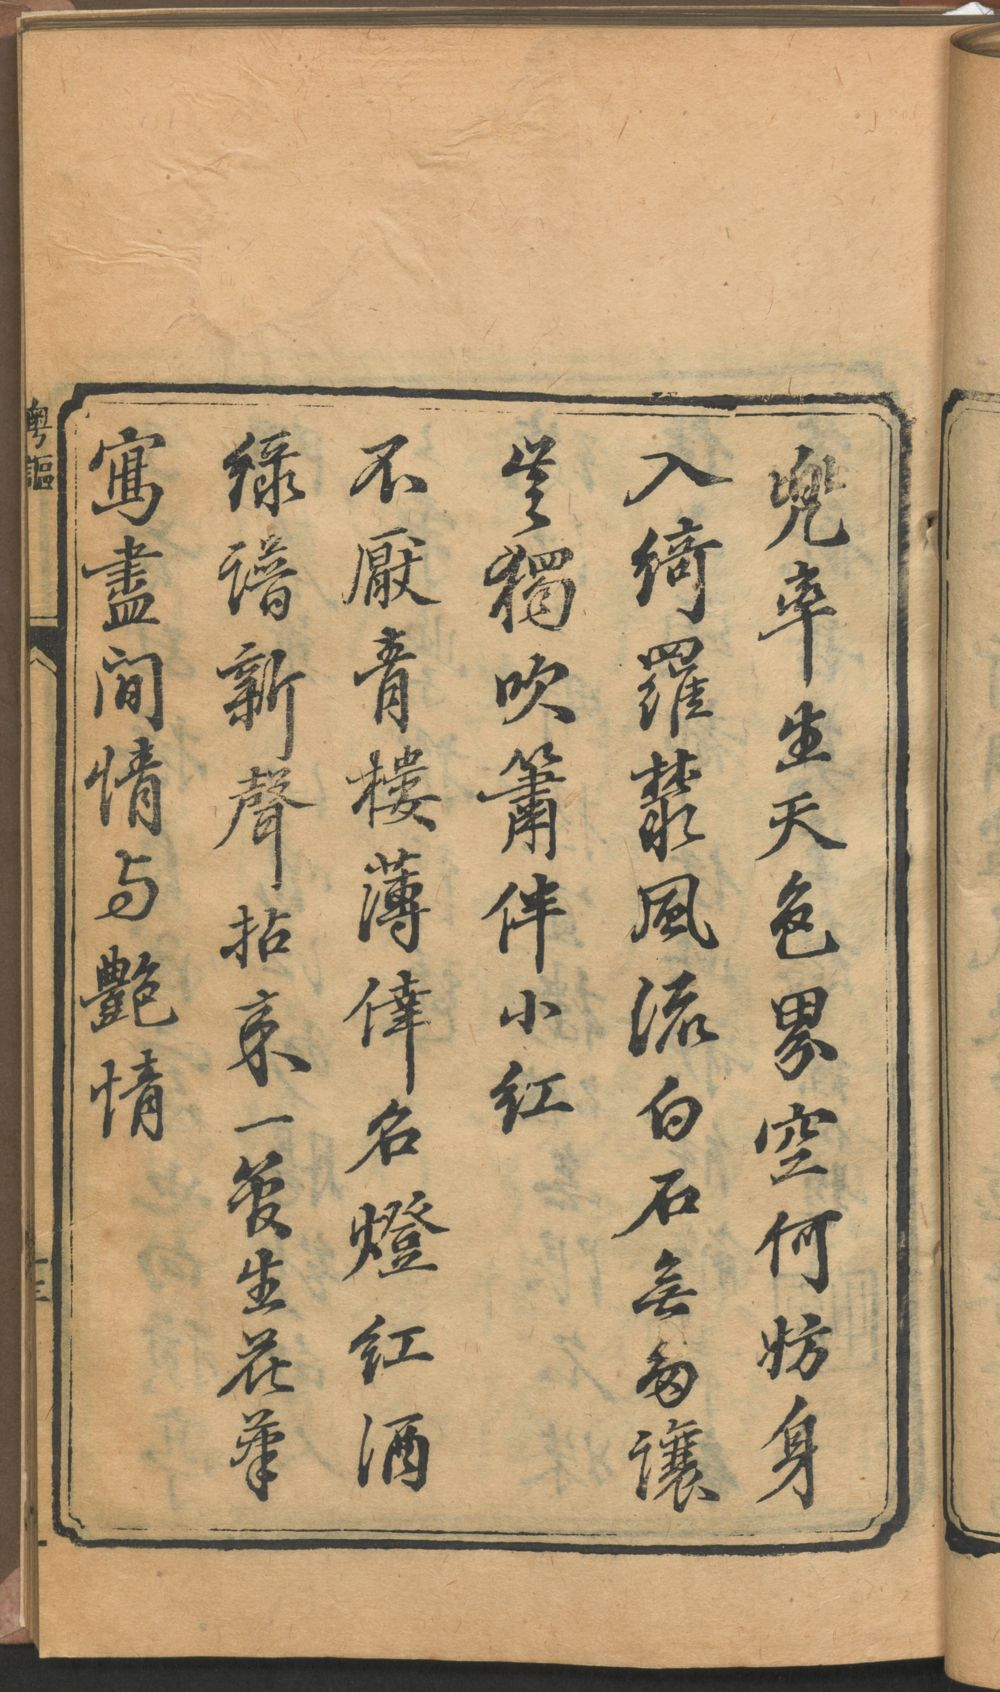 兜率生天色界空何妨身
入綺羅叢風流白石無多讓
芝獨吹簫伴小紅
不厭青樓薄倖名燈紅酒
綠譜新聲拈來一管生花筆
寫盡閒情与艷情
粵謳
十三